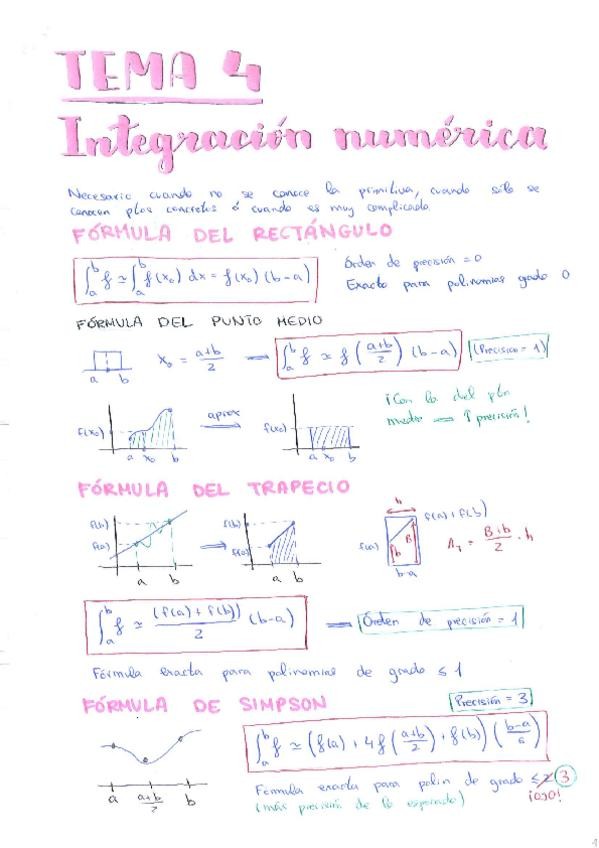 TEMA 4
Integración numérica
Necesario cuando no se conoce la primitiva, cuando sólo se
conocen ptos concretos ó cuando es muy complicada.
FÓRMULA DEL RECTÁNGULO
∫_a^b f ≃ ∫_a^b f(x₀) dx = f(x₀) (b-a)
Órden de precisión = 0
Exacta para polinomios grado 0
FÓRMULA DEL PUNTO MEDIO
a b
x₀ = (a+b)/2 → ∫_a^b f ≃ f((a+b)/2) (b-a) (Precisión = 1)
¡Con la del pto
medio ⇒ ↑ precisión!
f(x₀) a x₀ b
aprox
f(x₀) a x₀ b
FÓRMULA DEL TRAPECIO
f(b) f(a) a b
f(b) f(a) a b
h f(a) + f(b) f(a) b B b-a
A_T = (B+b)/2 · h
∫_a^b f ≃ (f(a) + f(b))/2 (b-a) ⇒ Órden de precisión = 1
Fórmula exacta para polinomios de grado ≤ 1
FÓRMULA DE SIMPSON
Precisión = 3
∫_a^b f ≃ (f(a) + 4f((a+b)/2) + f(b)) ((b-a)/6)
a (a+b)/2 b
Fórmula exacta para polin de grado ≤ 2 3
(más precisión de lo esperado) ¡OJO!
1